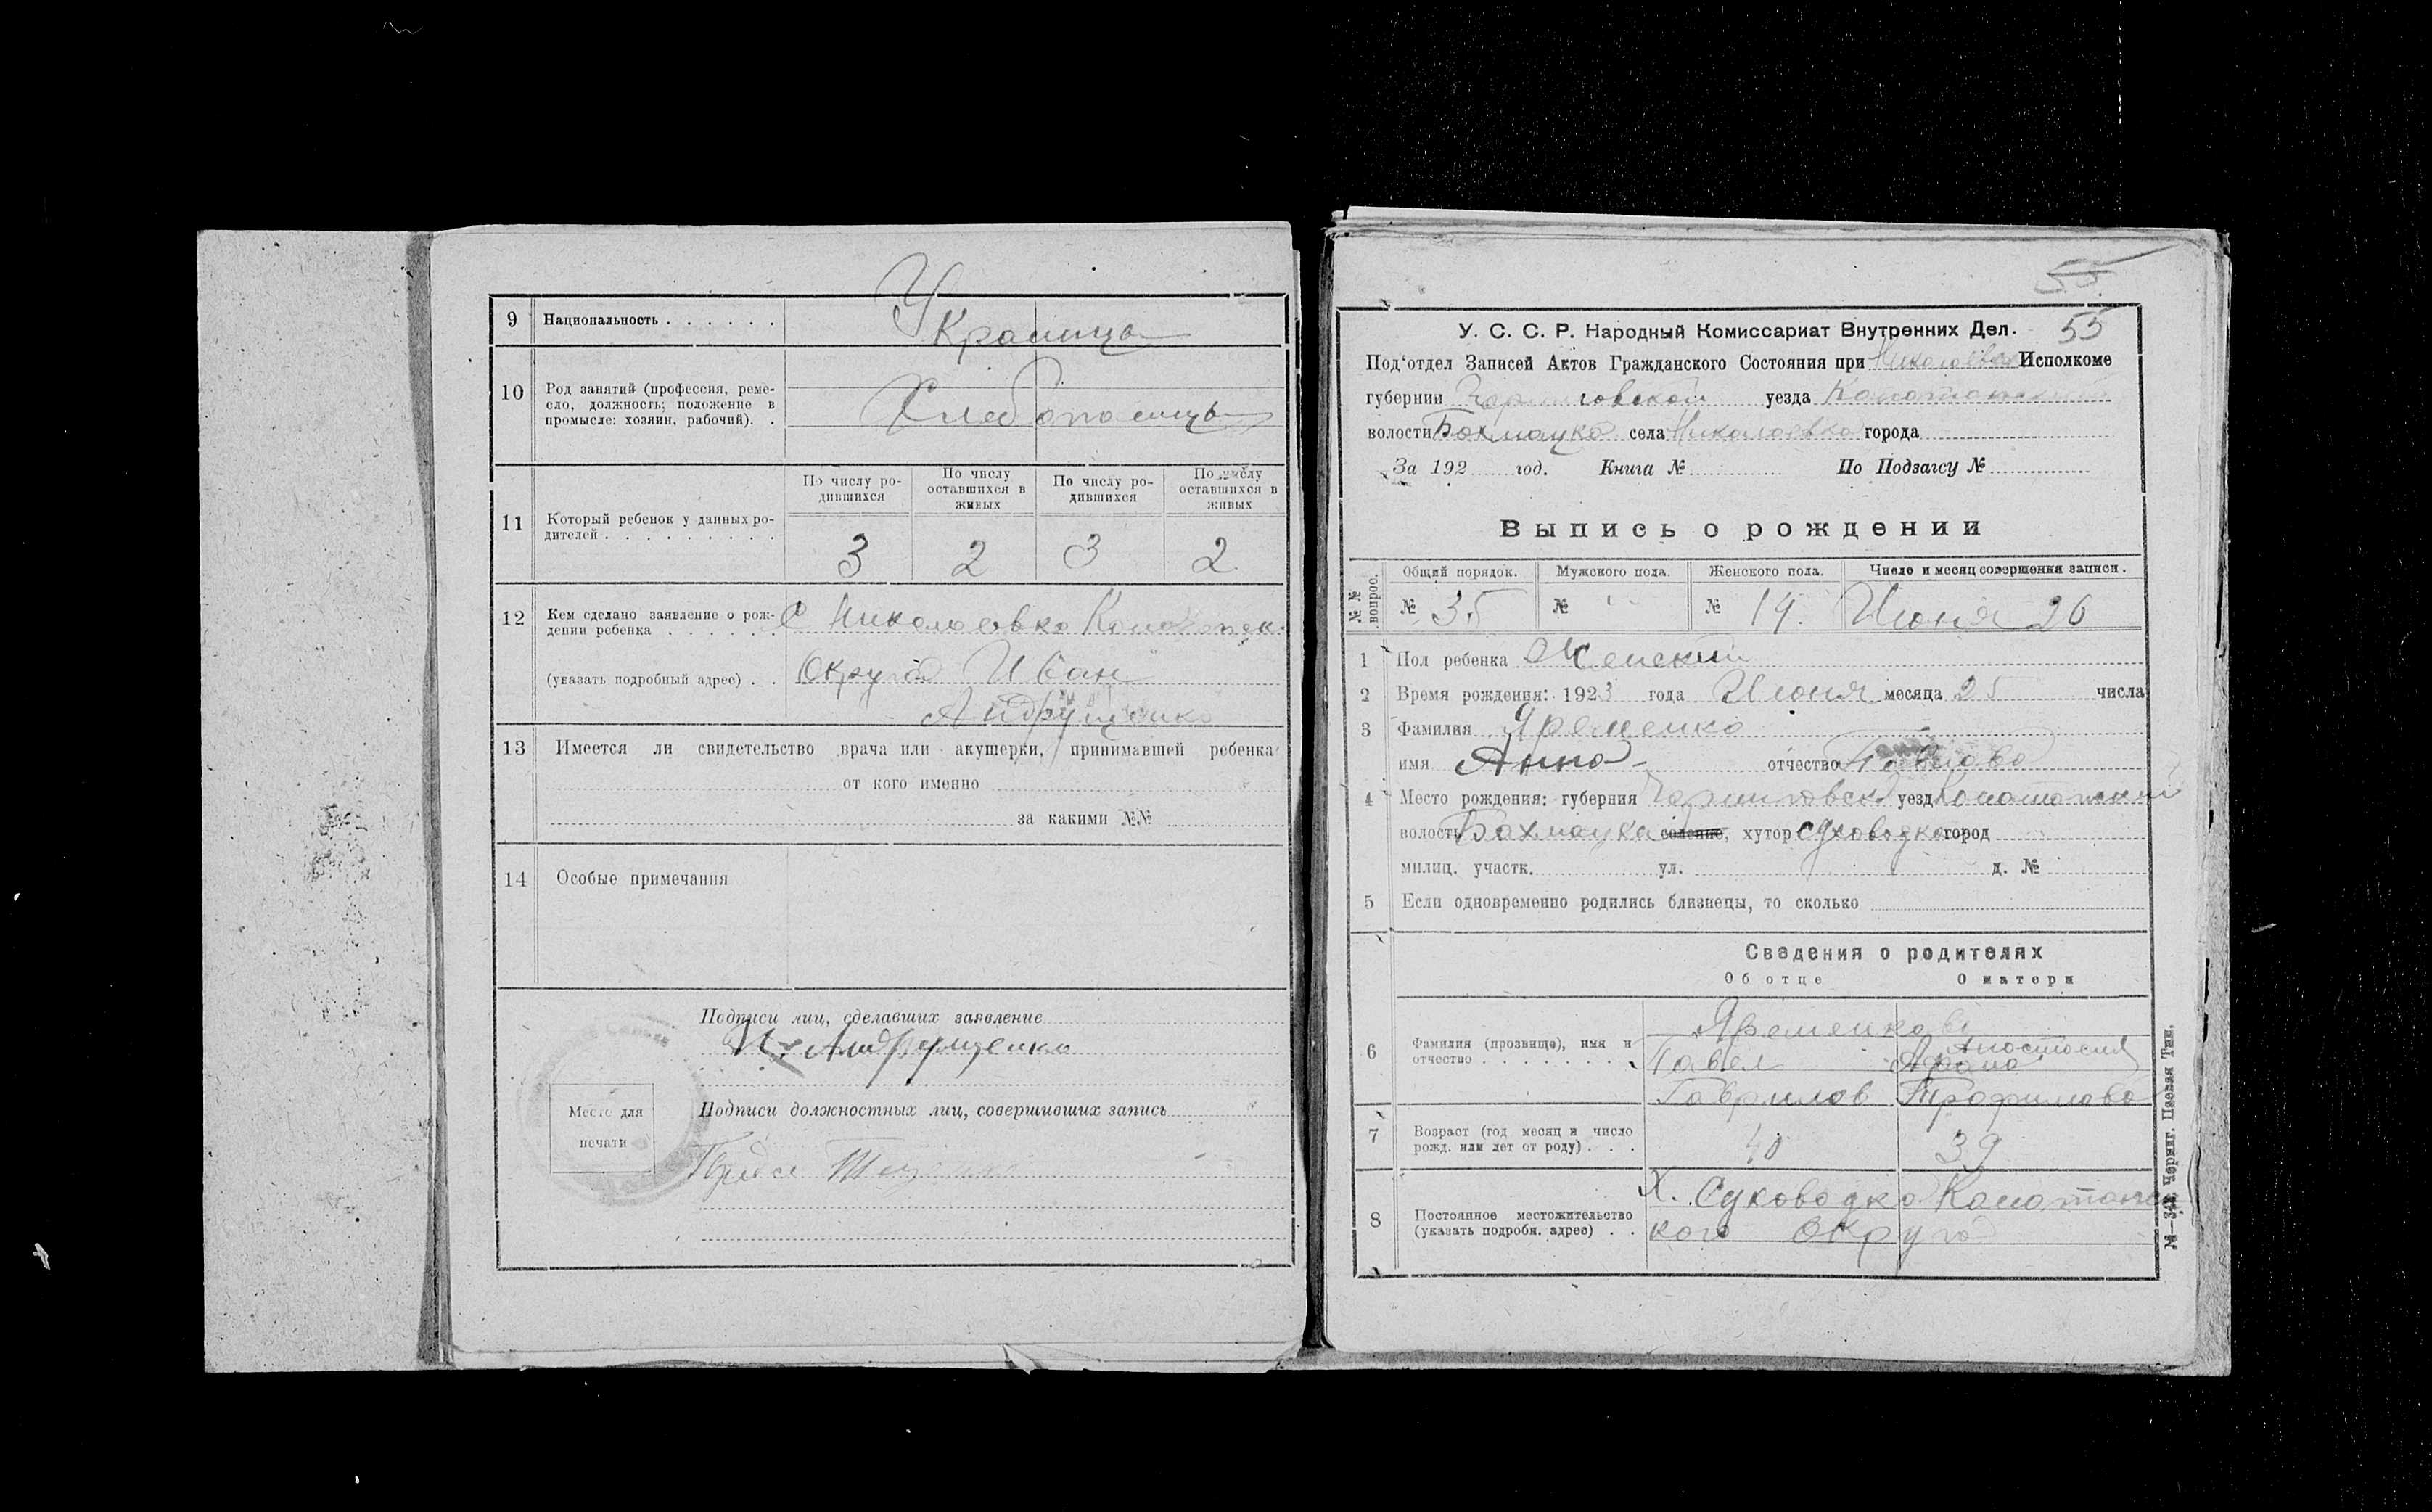 9 Национальность . . . . . .
Украинцы
10 Род занятий (профессия, реме-
сло, должность; положение в
промысле: хозяин, рабочий). .
Хлебопашцы
11 Который ребенок у данных ро-
дителей . . . . . . . . .
По числу ро-
дившихся
По числу
оставшихся в
живых
По числу ро-
дившихся
По числу
оставшихся в
живых
3 2 3 2
12 Кем сделано заявление о рож-
дении ребенка . . . . . .
(указать подробный адрес) . .
С Николаевка Конотопск.
Округа Иван
Андрущенко
13 Имеется ли свидетельство врача или акушерки, принимавшей ребенка
от кого именно
за какими №№
14 Особые примечания
Подписи лиц, сделавших заявление
И. Андрущенко
Место для
печати
Подписи должностных лиц, совершивших запись
55
У. С. С. Р. Народный Комиссариат Внутренних Дел. 55
Под‘отдел Записей Актов Гражданского Состояния при Исполкоме
губернии Черниговской уезда Конотопский
волости Бахмацка села Николаевка города
За 192 год. Книга № По Подзагсу №
Выпись о рождении
№№ вопрос.
Общий порядок. Мужского пола. Женского пола. Число и месяц совершения записи.
№ 35 № № 19. Июня 26
1 Пол ребенка Женский
2 Время рождения: 1923 года Июня месяца 25 числа
3 Фамилия Яременко
имя Анна отчество Павлова
4 Место рождения: губерния Черниговск уезд Конотопский
волость Бахмацка селение, хутор Суховодка город
милиц. участк. ул. д. №
5 Если одновременно родились близнецы, то сколько
Сведения о родителях
Об отце О матери
6 Фамилия (прозвище), имя и
отчество . . . . . . . .
Яременковы
Павел Анастасия
Гаврилов Трофимова
7 Возраст (год месяц и число
рожд. или лет от роду) . . .
40 39
8 Постоянное местожительство
(указать подробн. адрес) . .
Х. Суховодка Конотопс
кого Округа
№—348. Черниг. Паевая Тип.